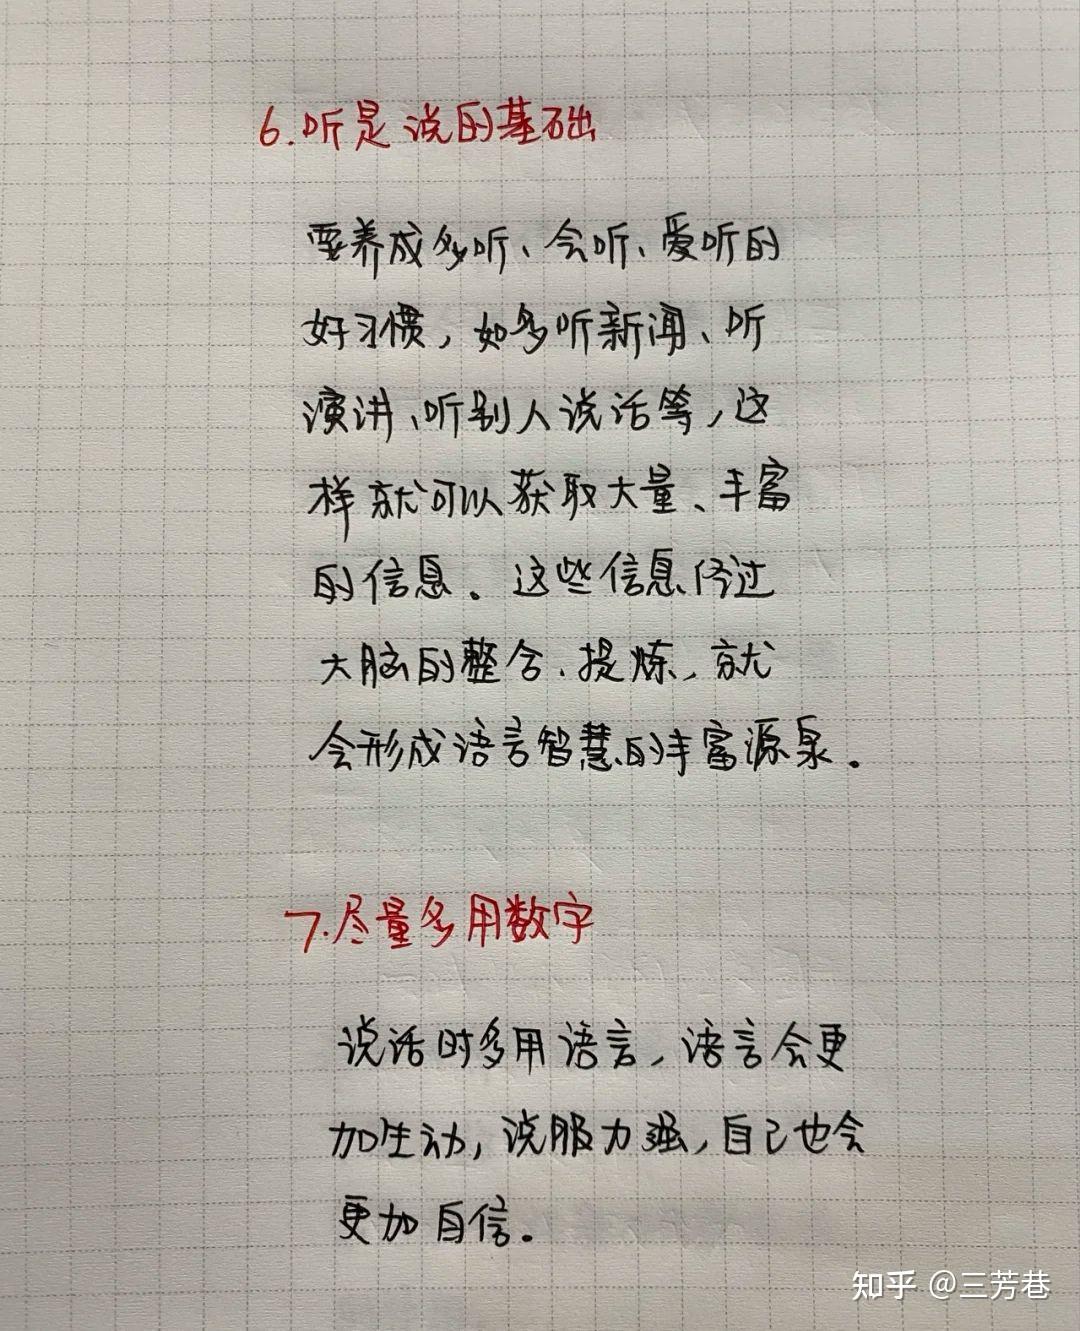 6.听是说的基础
要养成多听、会听、爱听的
好习惯，如多听新闻、听
演讲、听别人说话等，这
样就可以获取大量、丰富
的信息。这些信息经过
大脑的整合、提炼，就
会形成语言智慧的丰富源泉。
7.尽量多用数字
说话时多用语言，语言会更
加生动，说服力强，自己也会
更加自信。
知乎 @三芳巷